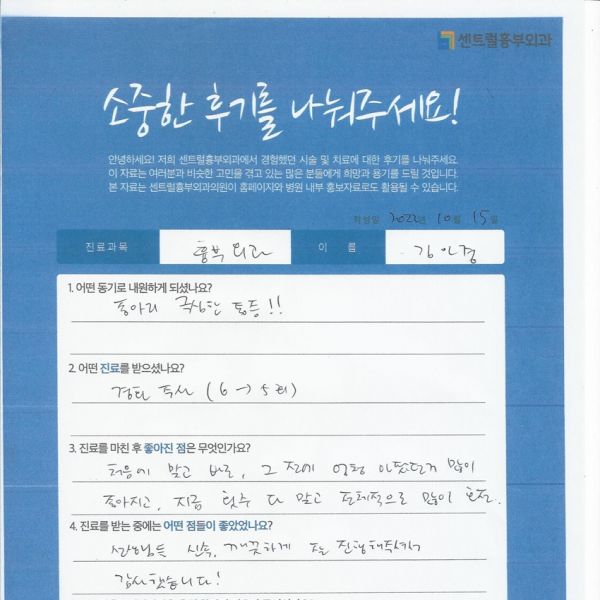 센트럴흉부외과
소중한 후기를 나눠주세요!
안녕하세요! 저희 센트럴흉부외과에서 경험했던 시술 및 치료에 대한 후기를 나눠주세요.
이 자료는 여러분과 비슷한 고민을 겪고 있는 많은 분들에게 희망과 용기를 드릴 것입니다.
본 자료는 센트럴흉부외과의원이 홈페이지와 병원 내부 홍보자료로도 활용될 수 있습니다.
작성일 2022년 10월 15일
진료과목 흉부외과 이 름
1. 어떤 동기로 내원하게 되셨나요?
종아리 극심한 통증!!
2. 어떤 진료를 받으셨나요?
주사 (6 → 5회)
3. 진료를 마친 후 좋아진 점은 무엇인가요?
처음에 맞고 바로, 그 전에 엄청 아팠던게 많이
좋아지고, 지금 횟수 다 맞고 전체적으로 많이 호전.
4. 진료를 받는 중에는 어떤 점들이 좋았었나요?
선생님들 신속, 깨끗하게 진행해주셔서
감사했습니다!